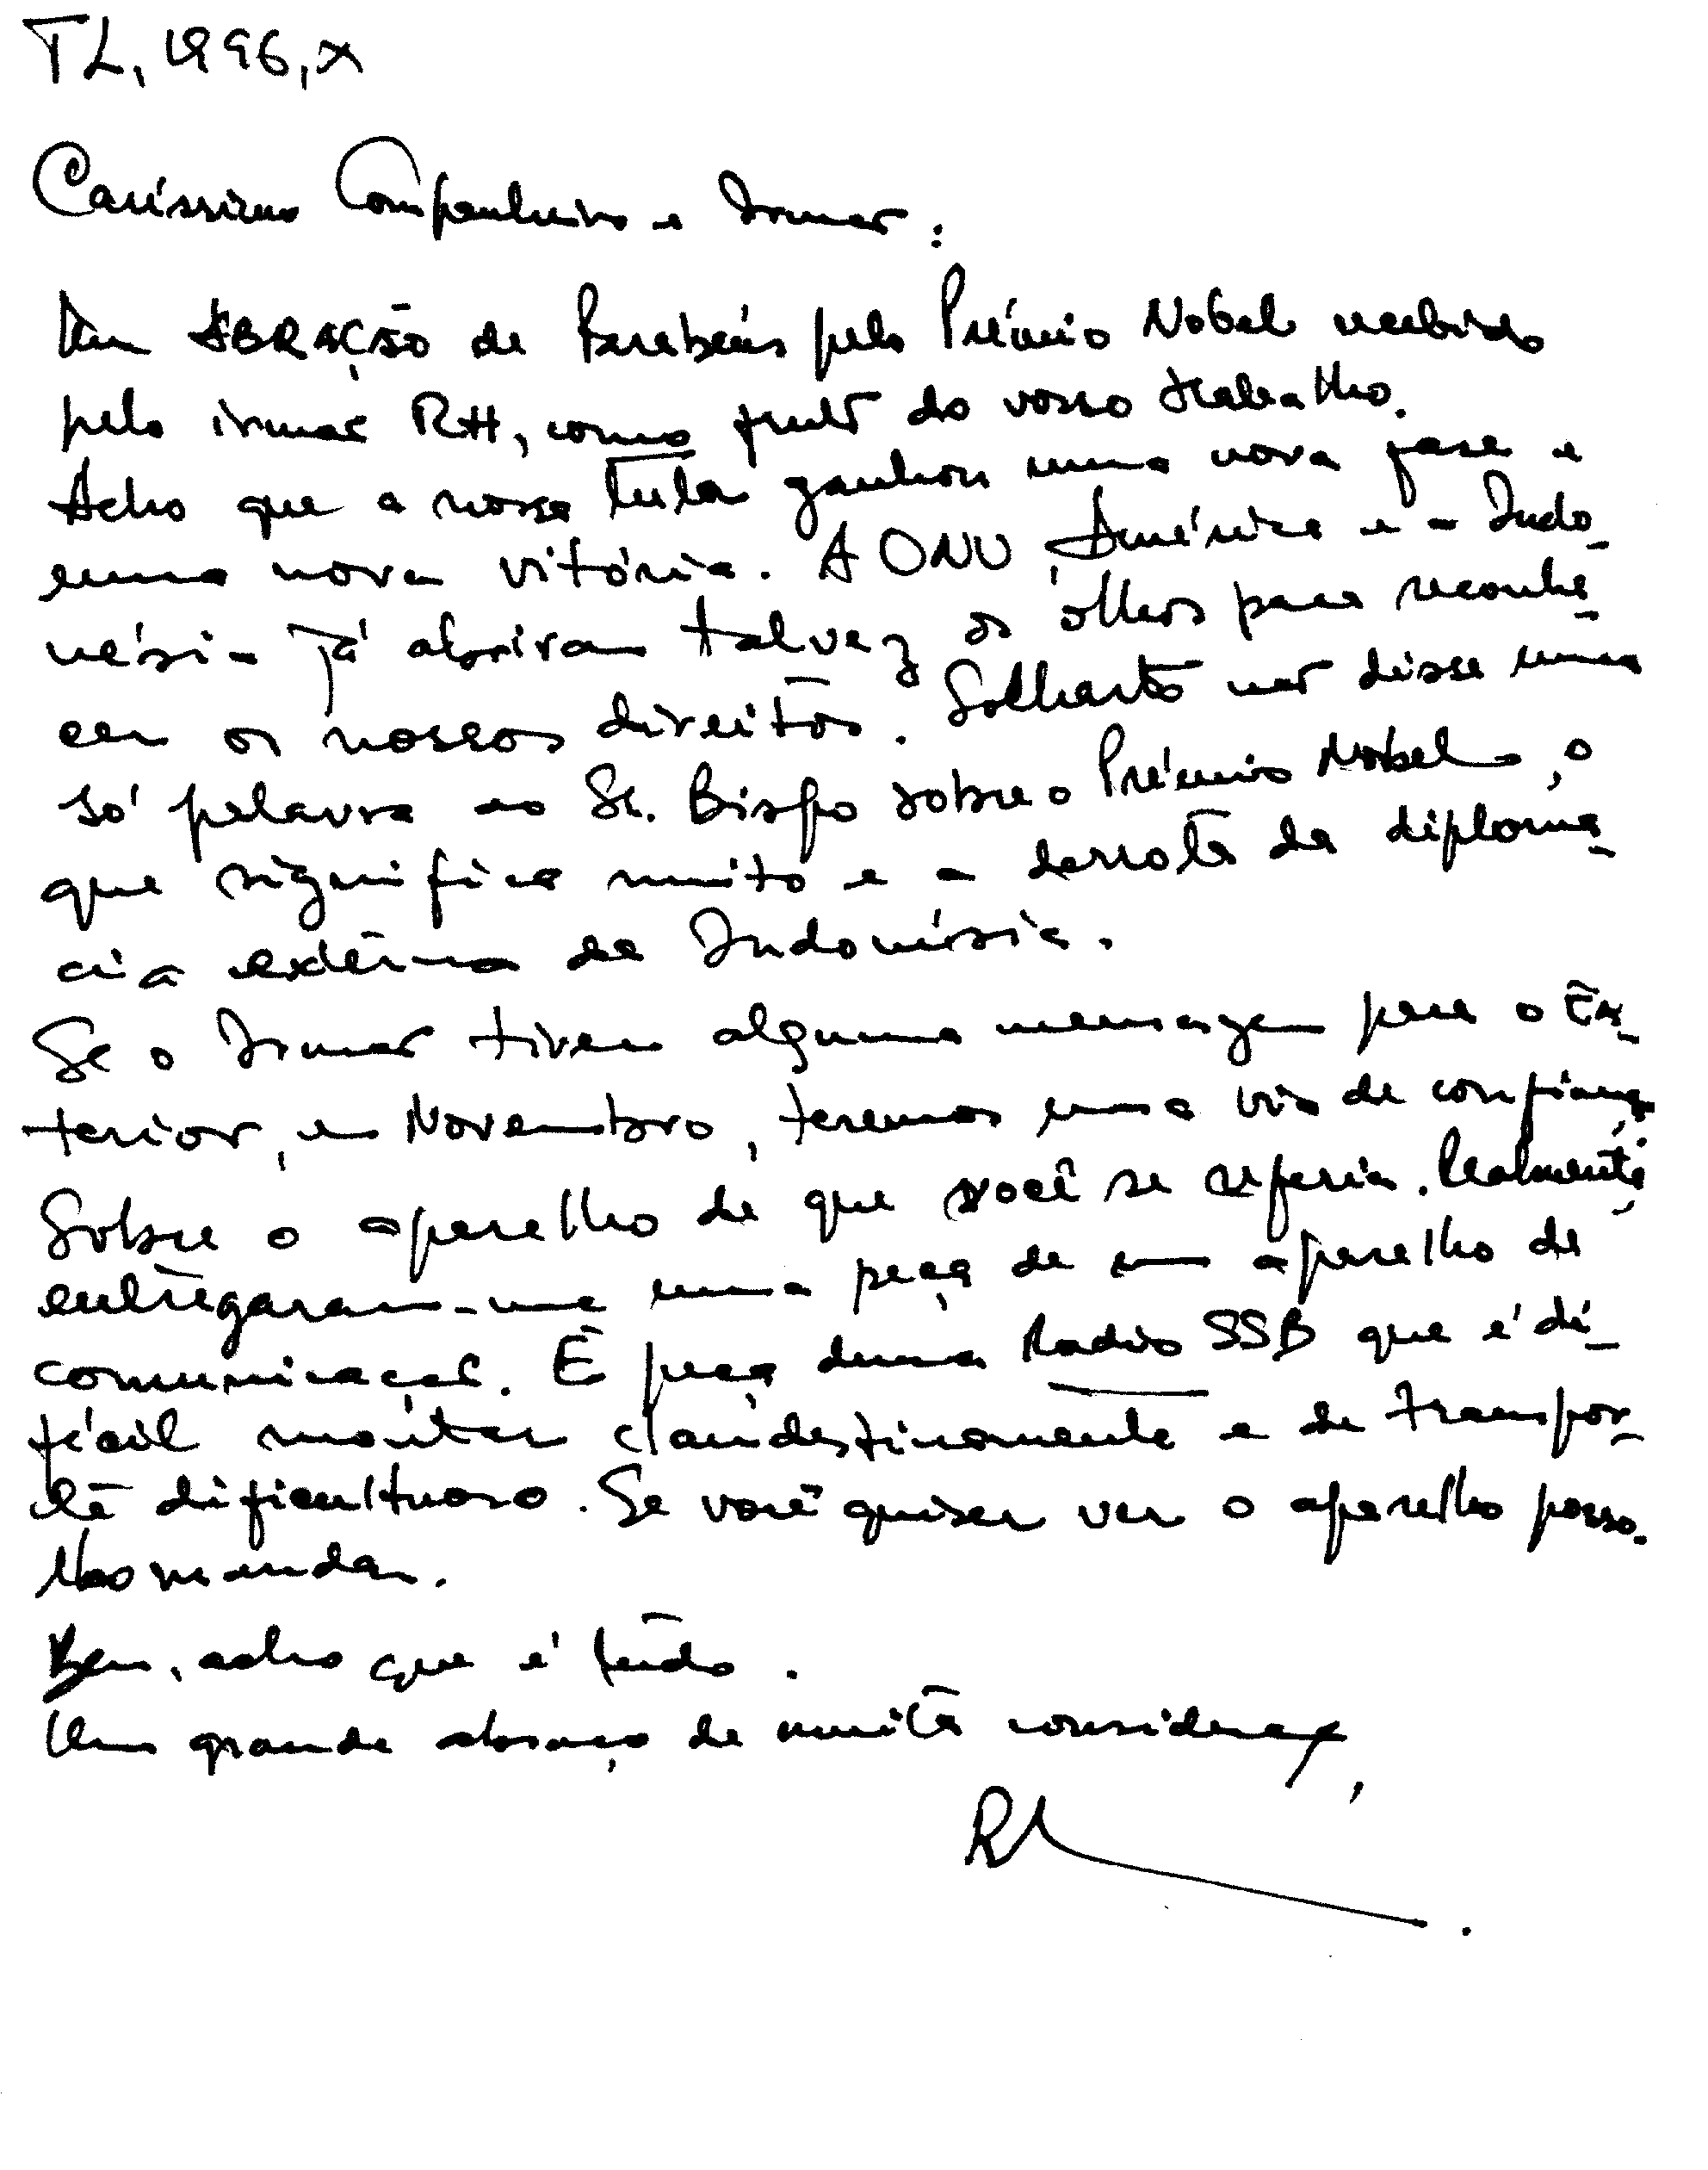 TL, 1996, X
Caríssimo Companheiro e Irmão:
Um ABRAÇÃO de Parabéns pelo Prémio Nobel recebido
pelo irmão RH, como fruto do vosso trabalho.
Acho que a nossa luta ganhou uma nova fase e
uma nova vitória. A ONU, América e a Indo-
nésia já abriram talvez os olhos para reconhe-
cer os nossos direitos. Solharto não disse uma
só palavra ao Sr. Bispo sobre o Prémio Nobel, o
que significa muito e a derrota da diploma-
cia externa da Indonésia.
Se o Irmão tiver alguma mensagem para o Ex-
terior, em Novembro, teremos uma via de confiança.
Sobre o aparelho de que você se referia. Realmente,
entregaram-me uma peça de um aparelho de
comunicação. É peça duma Radio SSB que é di-
fícil montar clandestinamente e de transpor-
te dificultuoso. Se você quiser ver o aparelho posso-
lho mandar.
Bem, acho que é tudo.
Um grande abraço de muita